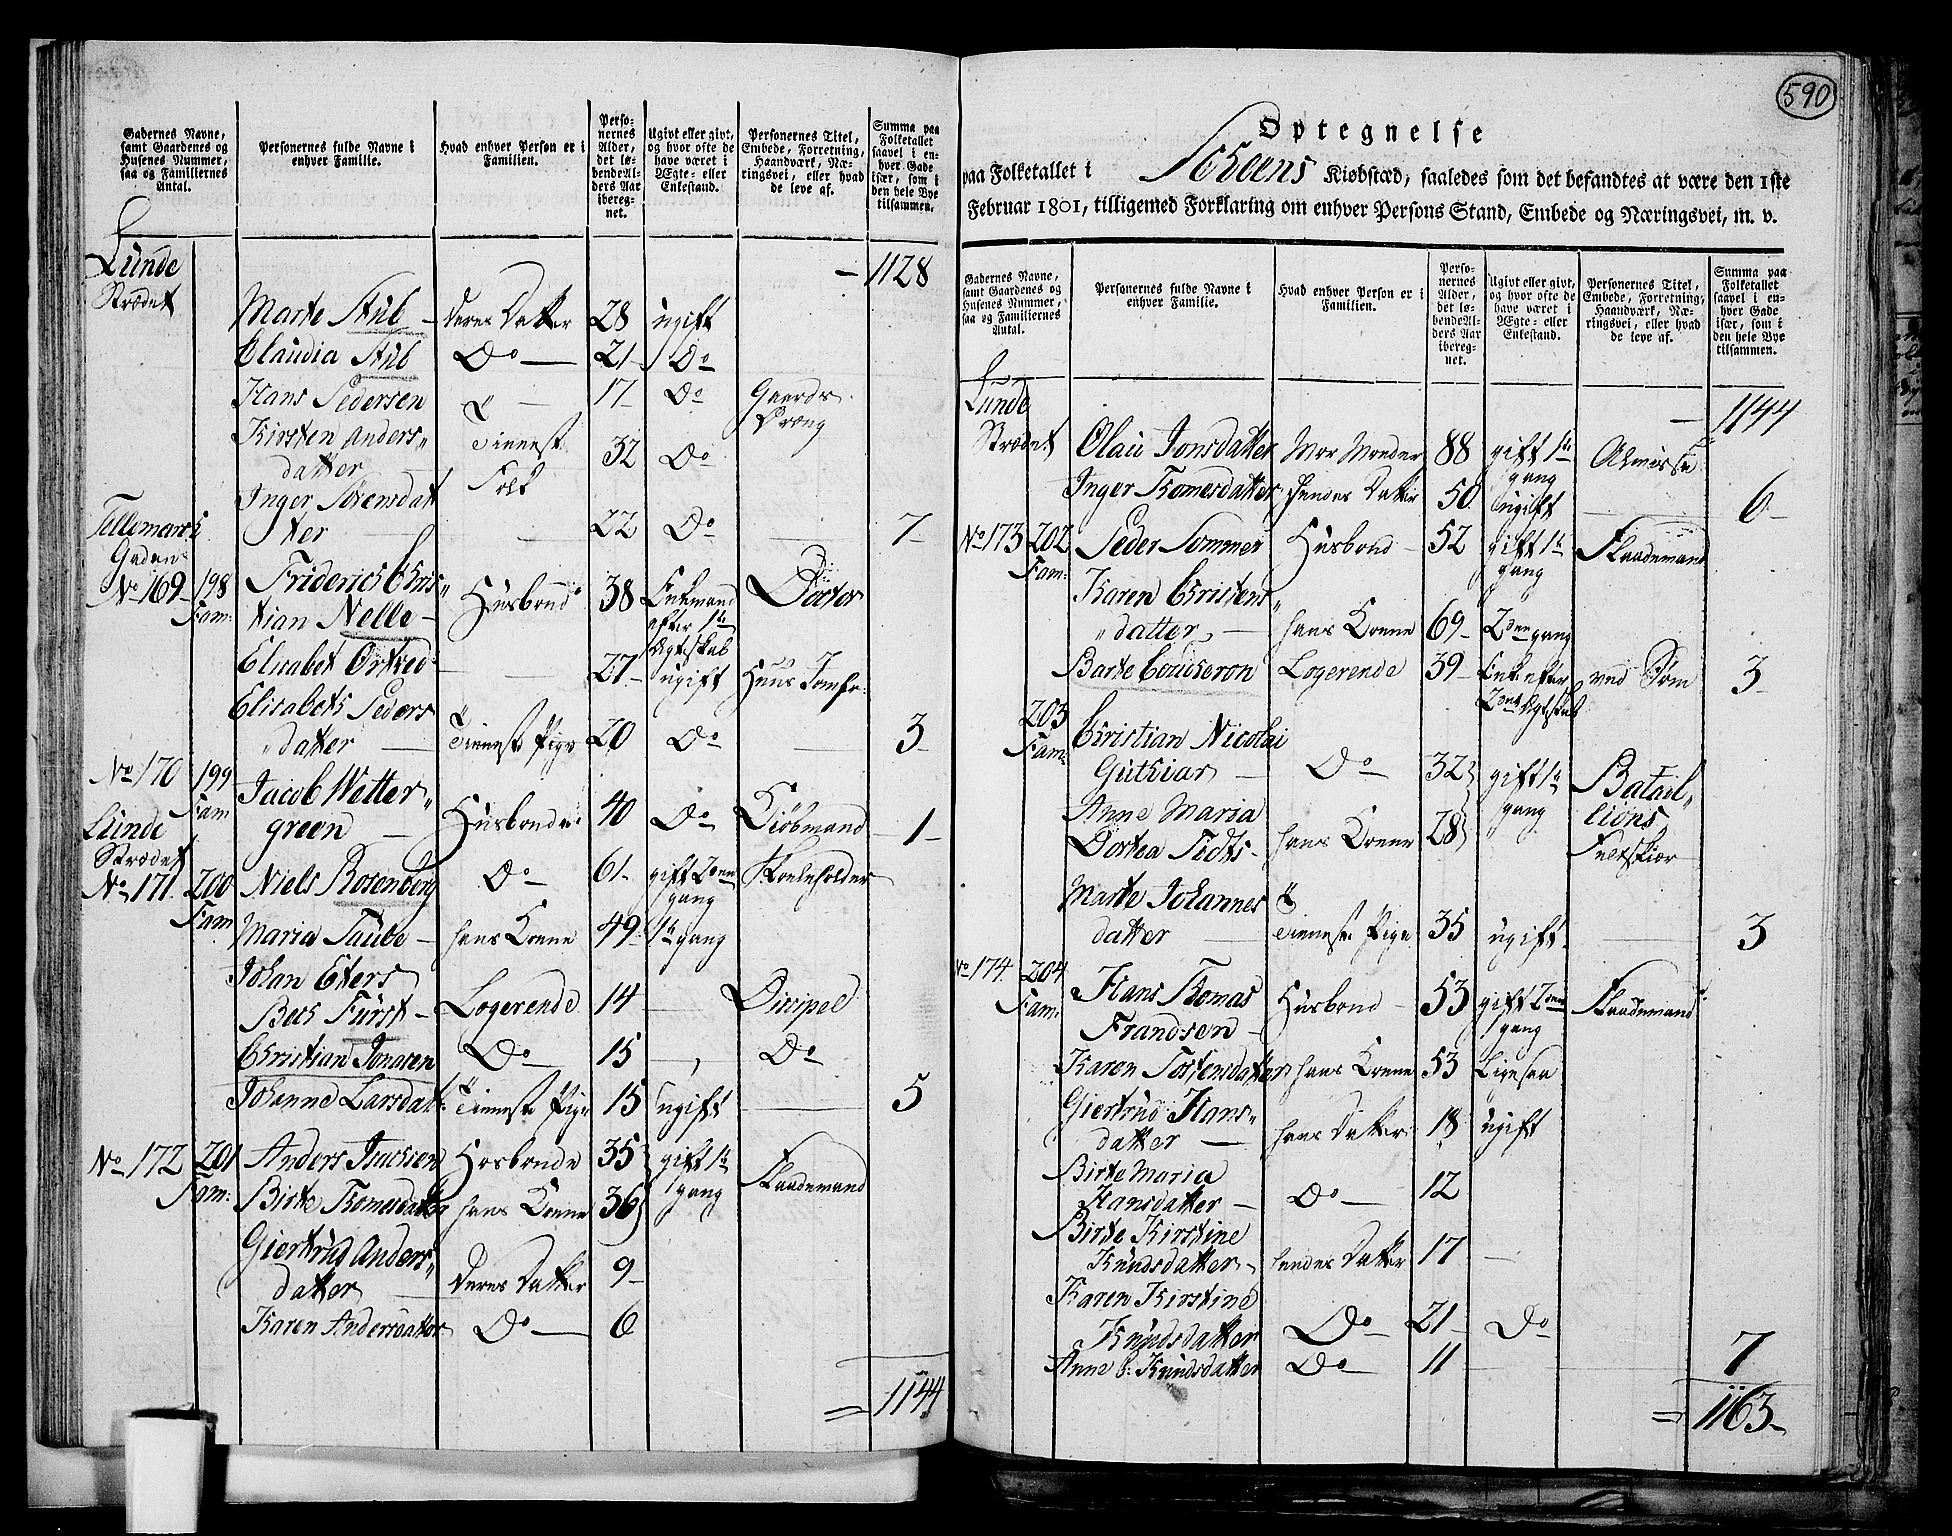 Gadernes Navne, samt Gaardenes og Husenes Nummer, saa og Familiernes Antal.
Personernes fulde Navne i enhver Familie.
Hvad enhver Person er i Familien.
Personernes Alder, det løbende Alders Aar iberegnet.
Ugivt eller givt, og hvor ofte de have været i Ægte- eller Enkestand.
Personernes Titel, Embede, Forretning, Haandværk, Næringsvei, eller hvad de leve af.
Summa paa Folketallet saavel i enhver Gade især, som i den hele Bye tilsammen.
Lunde Strædet
1128
Marte Stub deres Datter 28 ugift
Claudia Stub Do 21 Do
Hans Pedersen 17 Do Gaards Dræng
Kirsten Anders datter Tieneste Folk 32 Do
Inger Sørensdatter 22 Do 7
Tellemarks Gaden
No 169 198 Fam: Friderich Christian Nelle Husbond 38 Enkemand efter 1te Ægteskab Doctor
Elisabet Ørsted 27 ugift Huus Jomfr:
Elisabeth Peders datter Tieneste Pige 20 Do 3
No 170 199 Fam Jacob Wettergreen Husbonde 40 Do Kiøbmand 1
Lunde Strædet
No 171 200 Fam Niels Rosenberg Do 61 gift 2den gang Skoeleholder
Maria Taube hans Kone 49 1te gang
Johan
Fürst Logerende 14 Discipel
Christian Jonasen Do 15 Do
Johanne Larsdatt: Tieneste Pige 15 ugift 5
No 172 201 Fam: Anders Hosbonde 35 gift 1te gang Flaademand
Birte Tomesdatter hans Konne 36
Giertrud Anders datter deres Datter 9
Karen Andersdatter Do 6
1144
590
Optegnelse
paa Folketallet i Scheens Kiøbstæd, saaledes som det befandtes at være den 1ste
Februar 1801, tilligemed Forklaring om enhver Persons Stand, Embede og Næringsvei, m. v.
Gadernes Navne, samt Gaardenes og Husenes Nummer, saa og Familiernes Antal.
Personernes fulde Navne i enhver Familie.
Hvad enhver Person er i Familien.
Personernes Alder, det løbende Alders Aar iberegnet.
Ugivt eller givt, og hvor ofte de have været i Ægte- eller Enkestand.
Personernes Titel, Embede, Forretning, Haandværk, Næringsvei, eller hvad de leve af.
Summa paa Folketallet saavel i enhver Gade især, som i den hele Bye tilsammen.
Lunde Strædet
1144
Olau Jonsdatter 88 gift 1te gang Almisse
Inger Tomesdatter hendes Datter 50 ugift 6
No 173 202 Fam: Peder Sommer Husbond 52 gift 1te gang Flaademand
Karen Christens datter hans Konne 69 2den gang
Barte Logerende 39 Enke efter 2det Ægteskab ved Søm 3
203 Fam: Christian Nicolai Do 32 gift 1te gang Batailions Feltskiær
Anne Maria Dortea hans Konne 28
Marte Johannes datter Tieneste Pige 35 ugift 3
No 174 204 Fam: Hans Thomas Frandsen Husbond 53 gift 2den gang Flaademand
Karen Tostensdatter hans Konne 53 Ligesaa
Giertrud Hans datter hans Datter 18 ugift
Birte Maria Hansdatter Do 12
Birte Kirstine Knudsdatter hendes Datter 17
Karen Kirstine Knudsdatter Do 21 Do
Anne C: Knudsdatter Do 11 7
1163